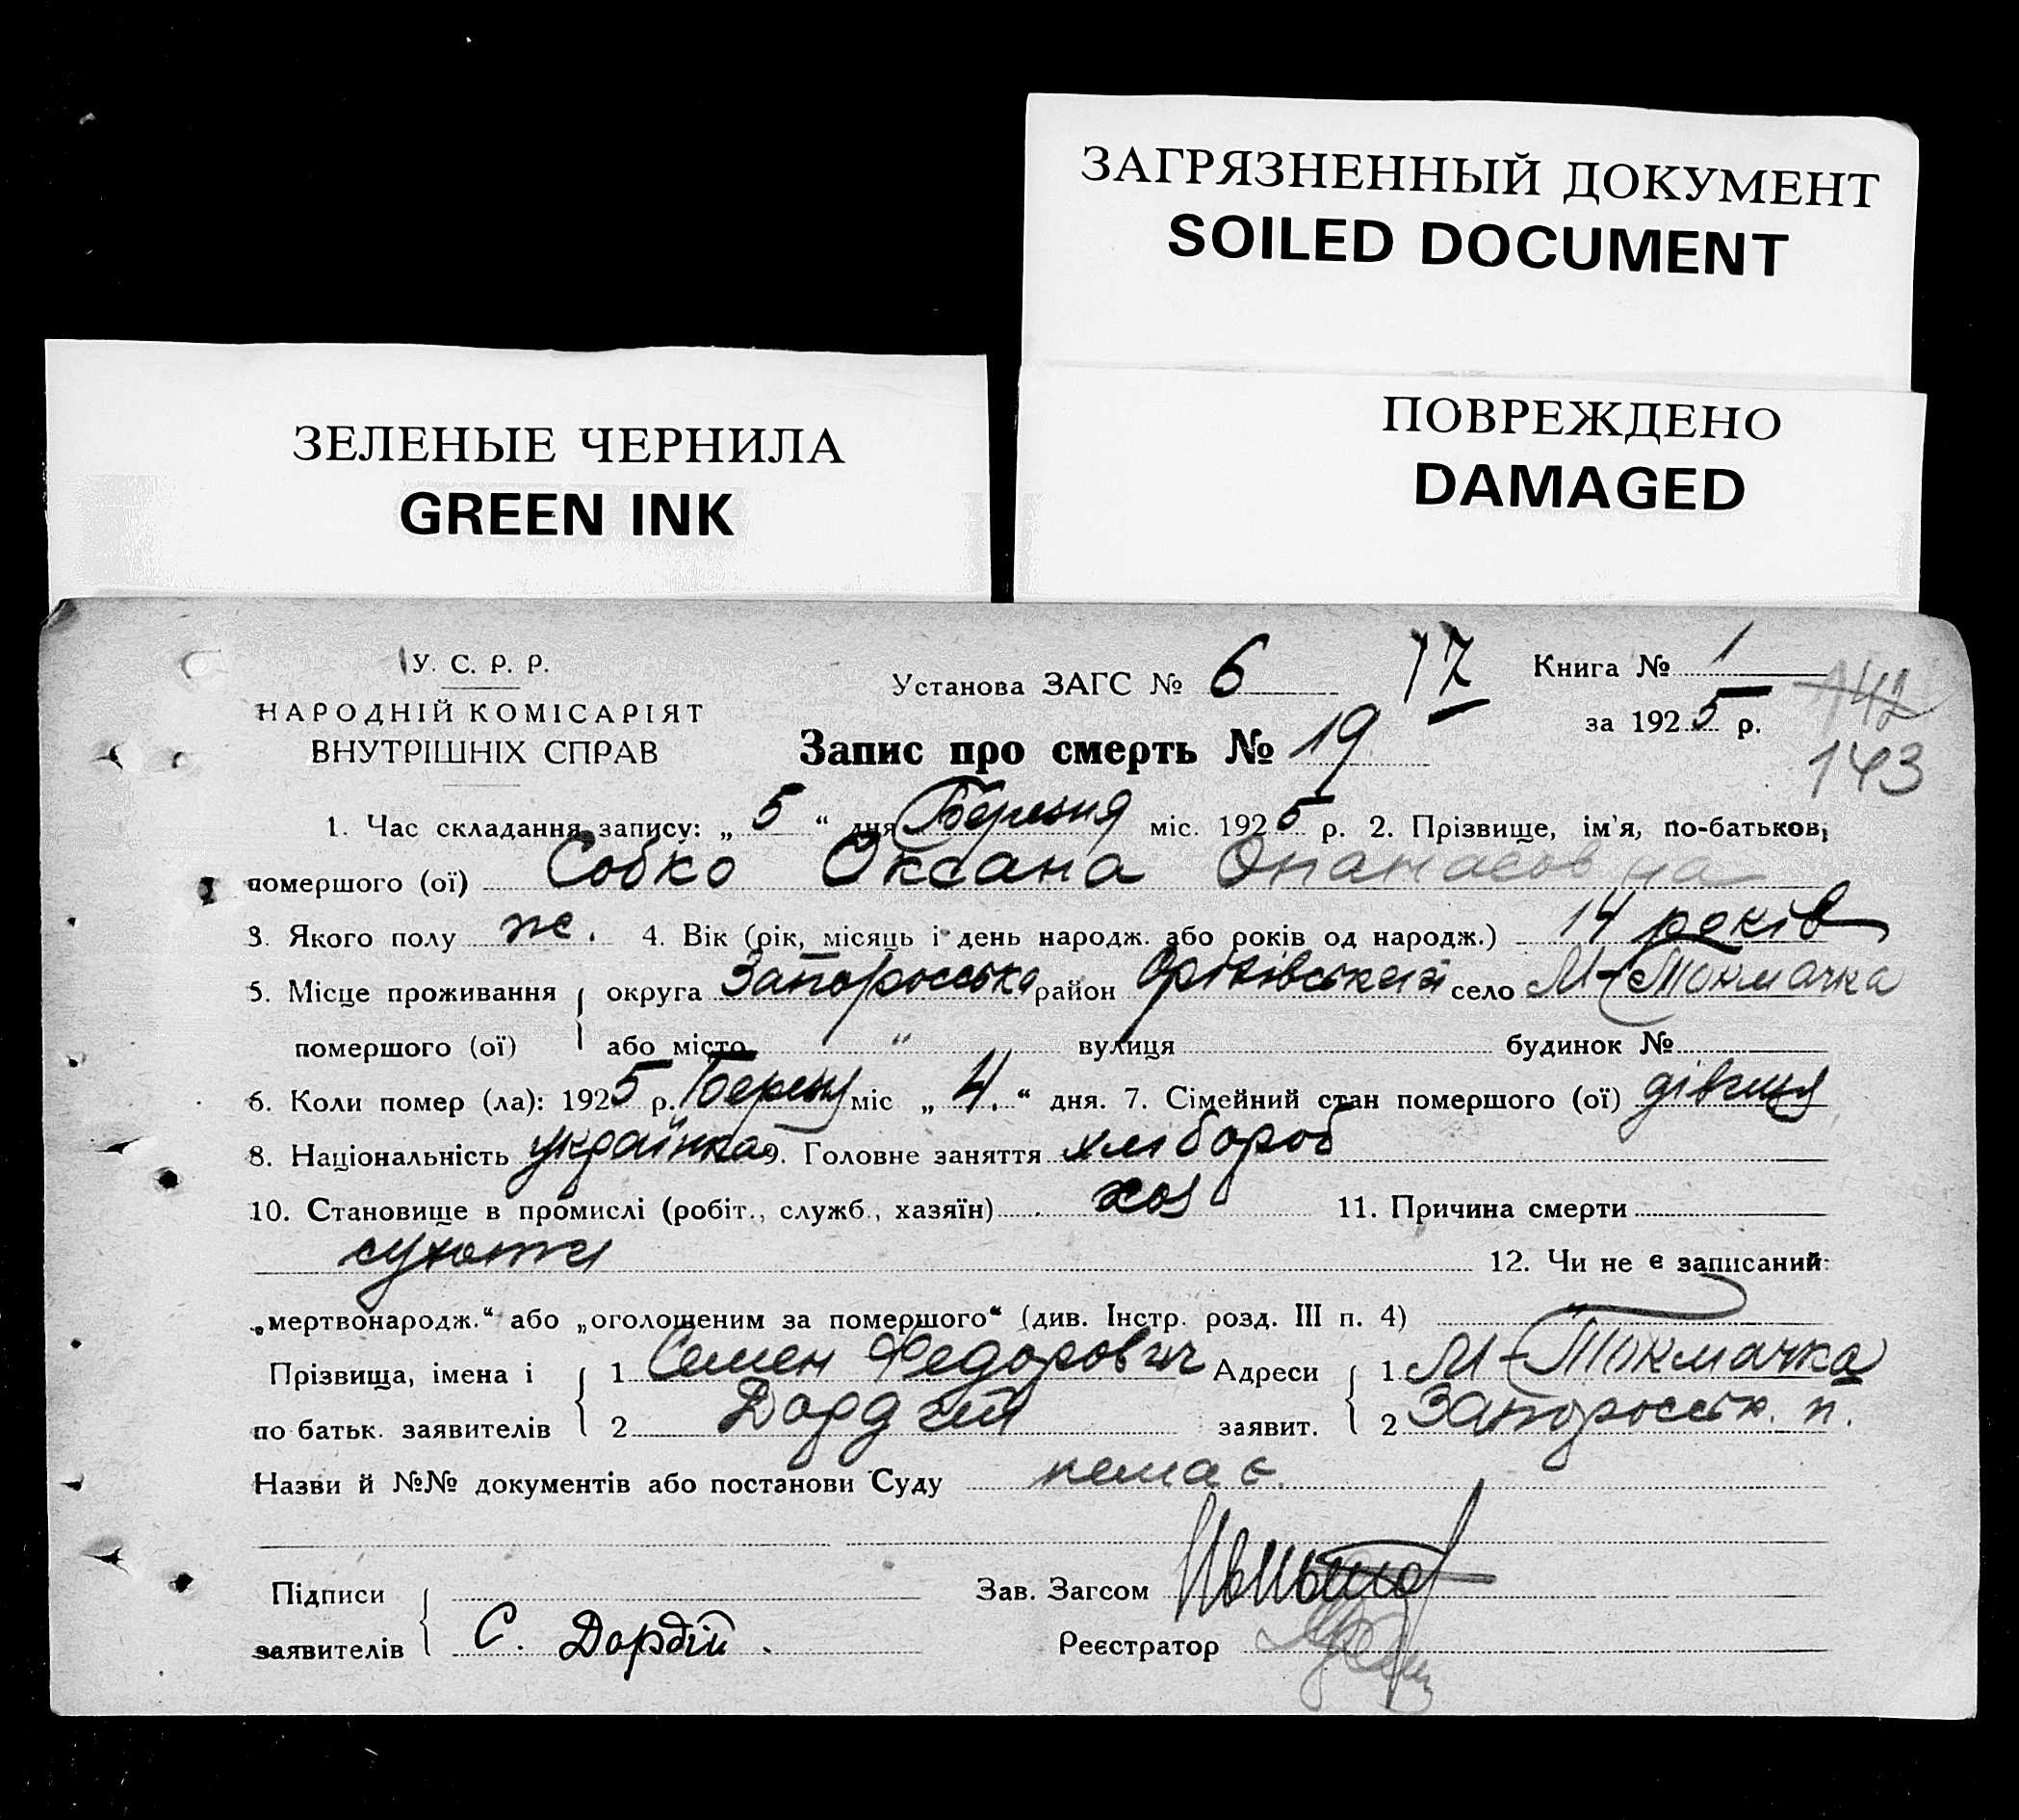 ЗАГРЯЗНЕННЫЙ ДОКУМЕНТ
SOILED DOCUMENT
ЗЕЛЕНЫЕ ЧЕРНИЛА
GREEN INK
ПОВРЕЖДЕНО
DAMAGED
У. С. Р. Р.
НАРОДНІЙ КОМІСАРІЯТ
ВНУТРІШНІХ СПРАВ
Установа ЗАГС № 6
17
Книга № 1
за 1925 р.
142
143
Запис про смерть № 19
1. Час складання запису: „ 5 “ дня Березня міс. 1925 р. 2. Прізвище, ім'я, по-батькові
помершого (ої) Собко Оксана Опанасовна
3. Якого полу ж. 4. Вік (рік, місяць і день народж. або років од народж.) 14 років
5. Місце проживання округа Запороська район Оріхівський село М-Токмачка
помершого (ої) або місто " вулиця будинок №
6. Коли помер (ла): 1925 р. Березня міс „ 4. “ дня. 7. Сімейний стан помершого (ої) дівиця
8. Національність українка 9. Головне заняття хлібороб
10. Становище в промислі (робіт., служб., хазяїн) хоз 11. Причина смерти
сухоти 12. Чи не є записаний:
„мертвонародж.“ або „оголошеним за помершого“ (див. Інстр. розд. III п. 4) "
Прізвища, імена і 1 Семен Федорович Адреси 1 М-Токмачка
по батьк. заявителів 2 Дордій заявит. 2 Запороськ. п.
Назви й №№ документів або постанови Суду немає.
Підписи Зав. Загсом
заявителів С. Дордій. Реєстратор